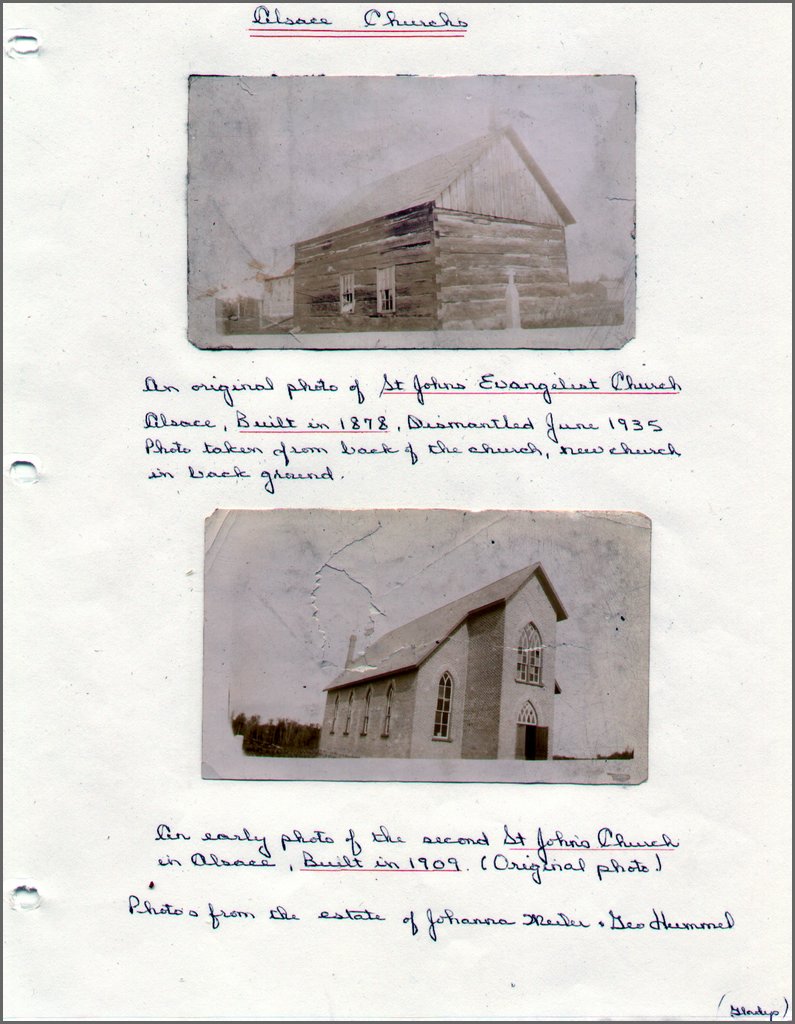 Alsace Churchs
An original photo of St Johns Evangelist Church
Alsace, Built in 1878, Dismantled June 1935
Photo taken from back of the church, new church
in back ground.
An early photo of the second St John's Church
in Alsace, Built in 1909. (Original photo.)
Photo's from the estate of Johanna & Geo Hummel
(Gladys)